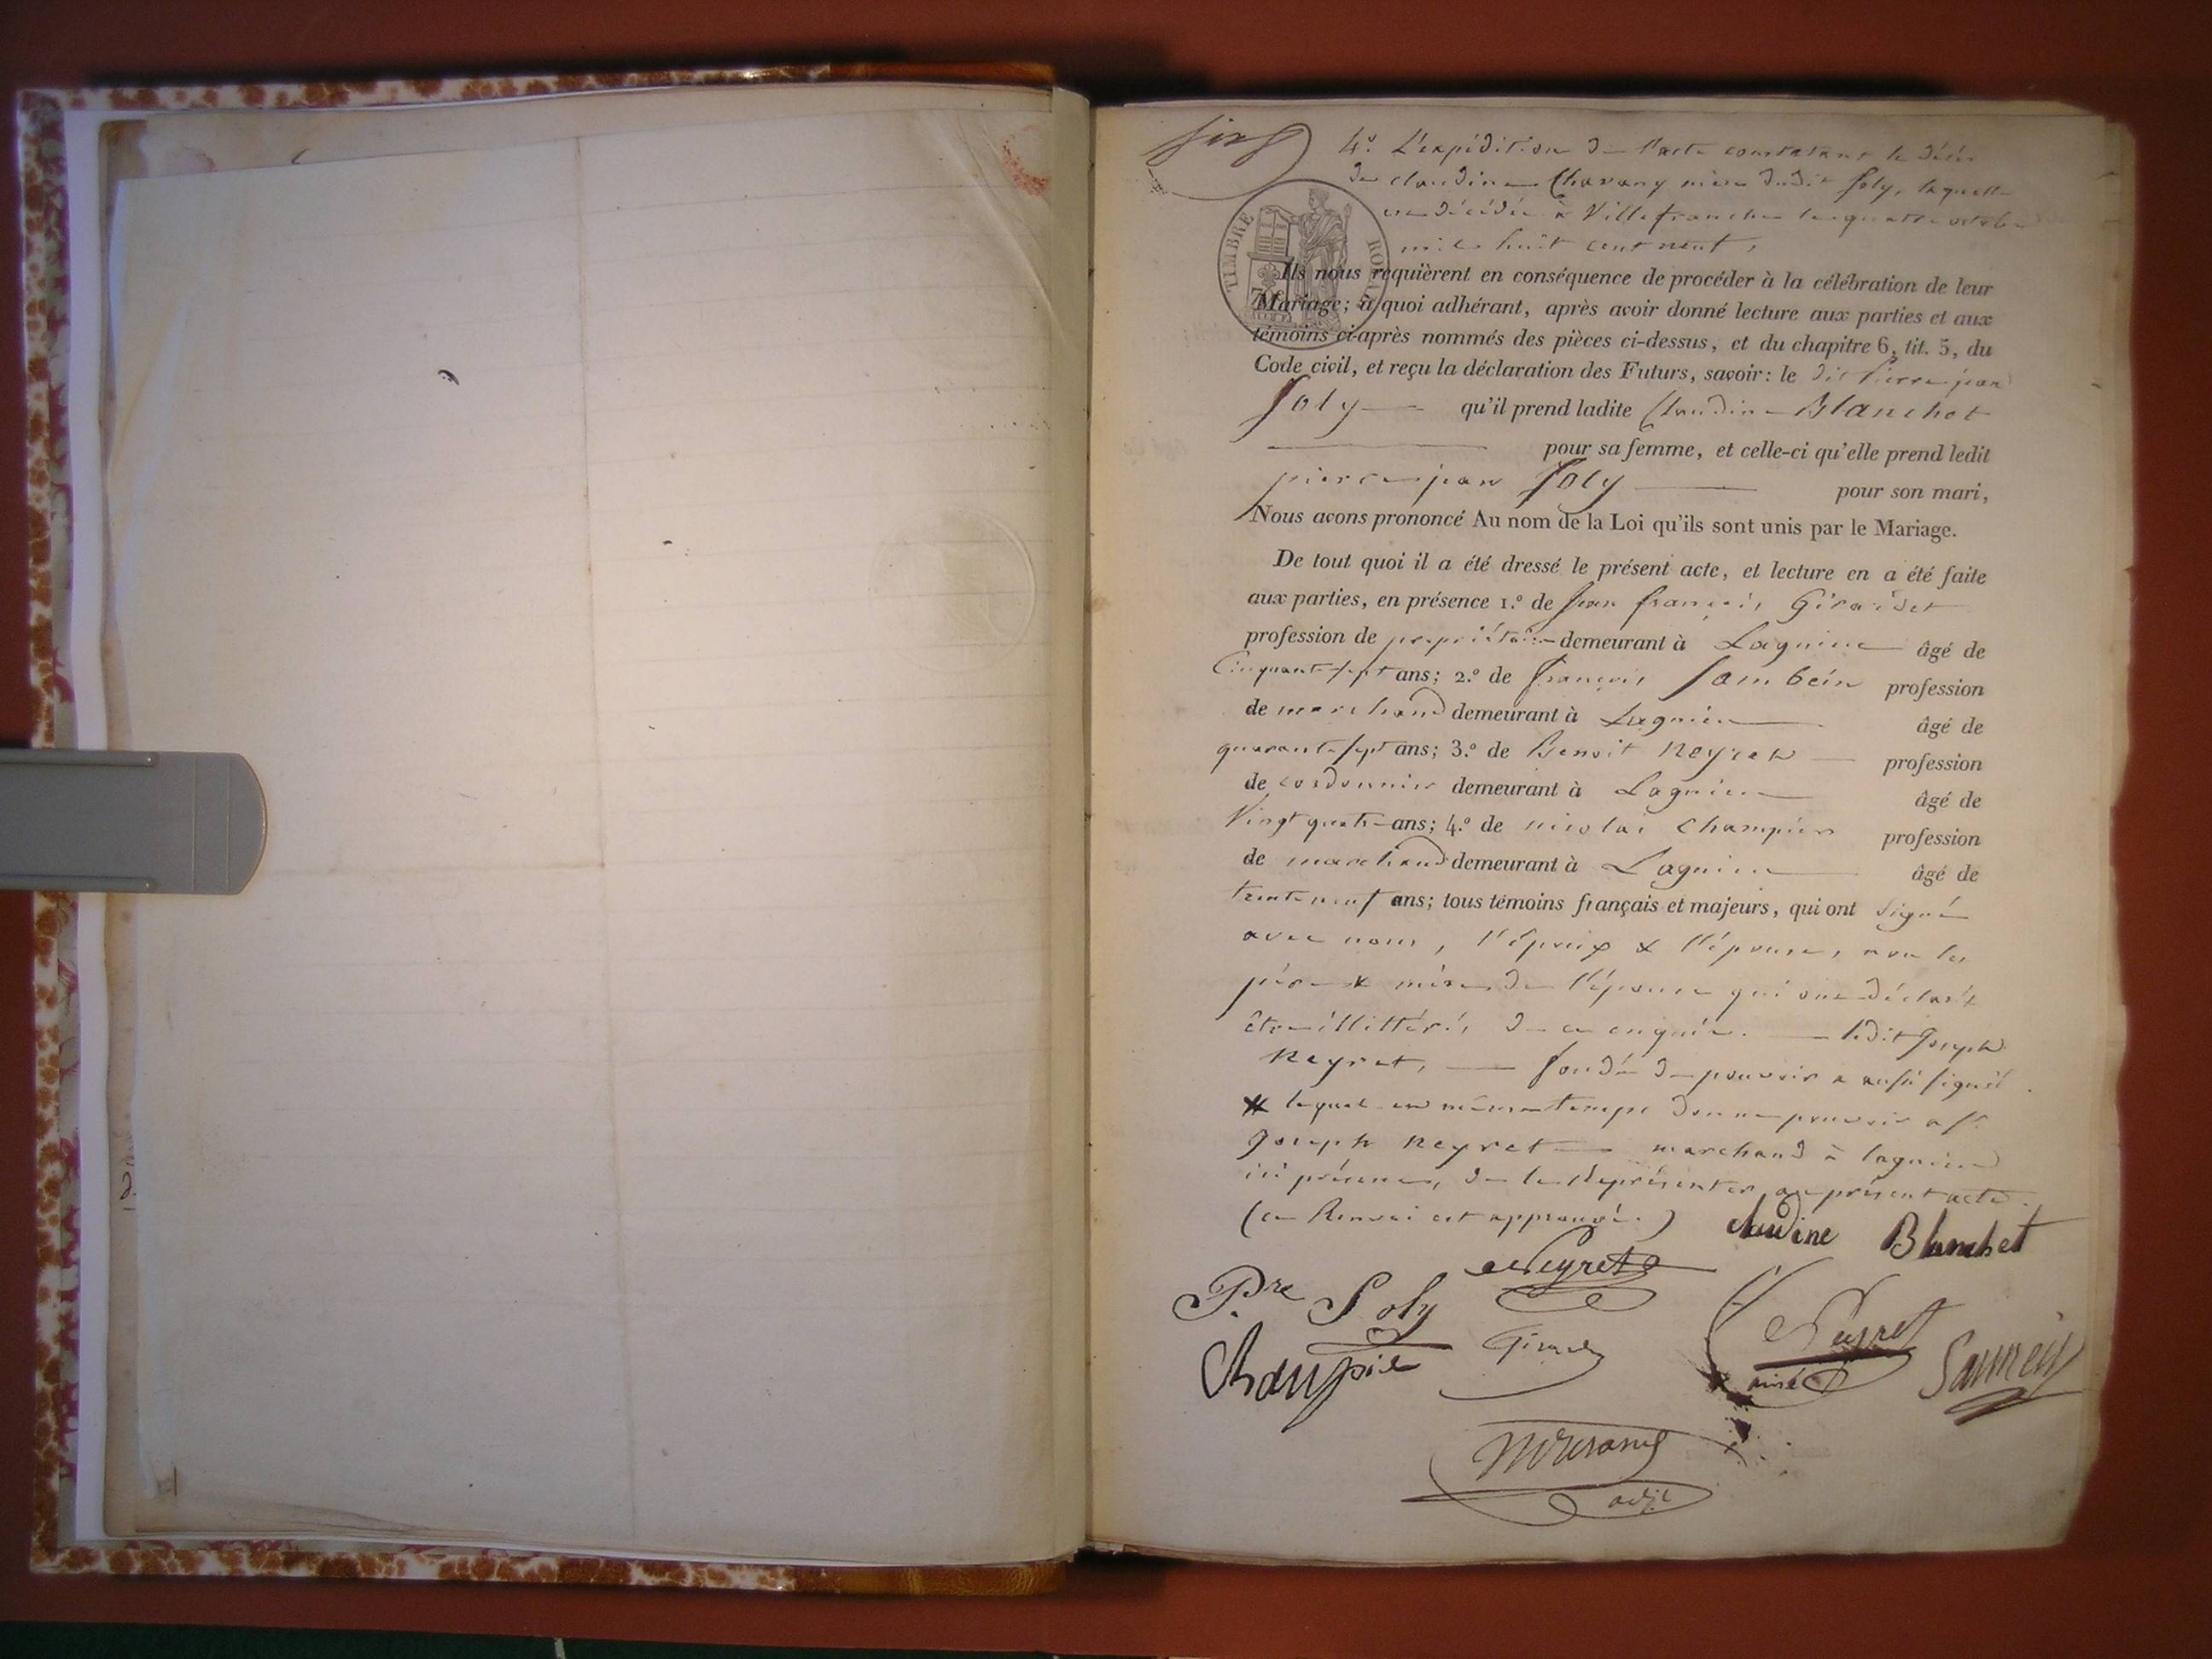 4.º L'expédition de l'acte constatant le décès
de claudine Chavany mère dudit Joly, laquelle
est décédée à Villefranche le quatre octobre
mil huit cent neuf,
TIMBRE ROYAL
Ils nous requièrent en conséquence de procéder à la célébration de leur
Mariage; à quoi adhérant, après avoir donné lecture aux parties et aux
témoins ci-après nommés des pièces ci-dessus, et du chapitre 6, tit. 5, du
Code civil, et reçu la déclaration des Futurs, savoir: le dit Pierre jean
Joly qu'il prend ladite Claudine Blanchet
pour sa femme, et celle-ci qu'elle prend ledit
pierre jean Joly pour son mari,
Nous avons prononcé Au nom de la Loi qu'ils sont unis par le Mariage.
De tout quoi il a été dressé le présent acte, et lecture en a été faite
aux parties, en présence 1.º de Jean françois Giraudet
profession de propriétaire demeurant à Lagnieu âgé de
Cinquante sept ans; 2.º de françois Sambein profession
de marchand demeurant à Lagnieu âgé de
quarante sept ans; 3.º de Benoit Neyret profession
de cordonnier demeurant à Lagnieu âgé de
Vingt quatre ans; 4.º de nicolas Champier profession
de marchand demeurant à Lagnieu âgé de
trente neuf ans; tous témoins français et majeurs, qui ont signé
avec nous, l'époux & l'épouse, non les
père & mère de l'épouse qui ont déclaré
être illittérés de ce enquis. ledit Joseph
Neyret, fondé de pouvoir a aussi signé.
lequel en même temps donne pouvoir a sr.
Joseph Neyret marchand à lagnieu
ici présent, de le Représenter au présent acte.
(ce Renvoi est approuvé.) claudine Blanchet
Neyret
Pre Joly
Neyret
ainé